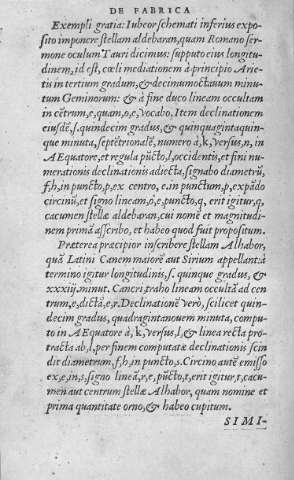 DE FABRICA
Exempli gratia: Iubeor schemati inferius expo-
sito imponere stellam aldebaran, quam Romano ser-
mone oculum Tauri dicimus: supputo eius longitu-
dinem, id est, cœli mediationem à principio Arie-
tis in tertium gradum, & decimumoctauum minu-
tum Geminorum: & à fine duco lineam occultam
in cētrum, e, quam, o, e, vocabo, Item declinationem
eiusdē, s. quindecim gradus, & quinquagintaquin-
que minuta, septētrionalē, numero à, k, versus, n, in
AEquatore, et regula pūcto, l, occidentis, et fini nu-
merationis declinationis adiecta, signabo diametrū,
f, h, in puncto, p, ex centro, e, in punctum, p, expādo
circinū, et signo lineam, o, e, puncto, q, erit igitur, q,
cacumen stellæ aldebaran, cui nomē et magnitudi-
nem primā ascribo, et habeo quod fuit propositum.
Præterea præcipior inscribere stellam Alhabor,
quā Latini Canem maiorē aut Sirium appellant: à
termino igitur longitudinis, s. quinque gradus, &
xxxiij, minut. Cancri, traho lineam occultā ad cen-
trum, e, dictā, e, r, Declinationē verò, scilicet quin-
decim gradus, quadragintaouem minuta, compu-
to in AEquatore à, k, versus, l, & linea recta pro-
tracta ab, l, per finem computatæ declinationis scin-
dit diametrum, f, h, in puncto, s. Circino autē emisso
ex, e, in, s, signo lineā, r, e, pūcto, t, erit igitur, t, cacu-
men aut centrum stellæ Alhabor, quam nomine et
prima quantitate orno, & habeo cupitum.
SIMI-